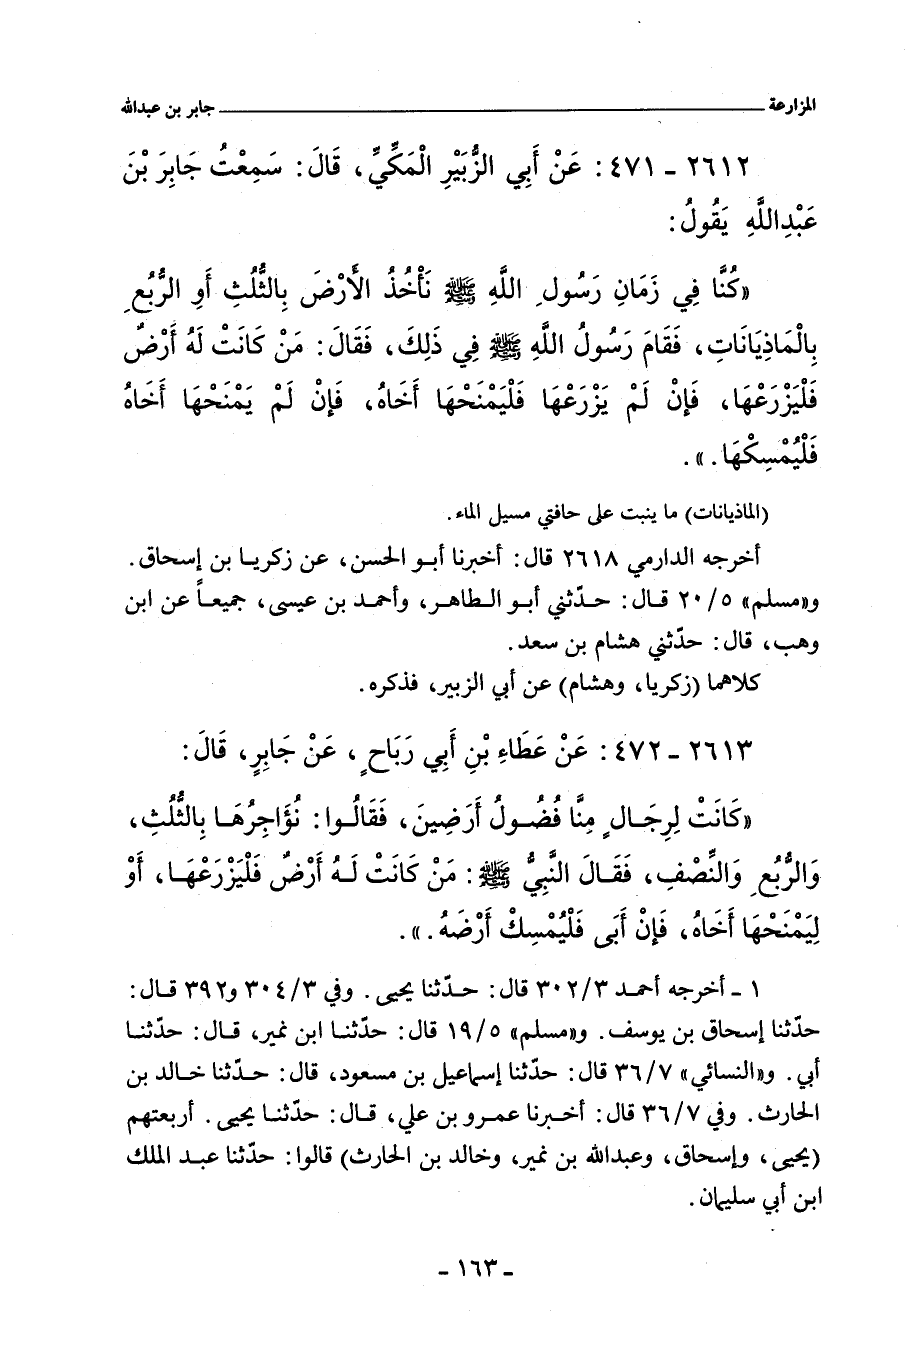 المزارعة ــــــ جابر بن عبدالله
٢٦١٢ ـ ٤٧١ : عَنْ أَبِي الزُّبَيْرِ الْمَكِّيِّ، قَالَ: سَمِعْتُ جَابِرَ بْنَ
عَبْدِاللَّهِ يَقُولُ:
«كُنَّا فِي زَمَانِ رَسُولِ اللَّهِ ﷺ نَأْخُذُ الْأَرْضَ بِالثُّلُثِ أَوِ الرُّبُعِ
بِالْمَاذِيَانَاتِ، فَقَامَ رَسُولُ اللَّهِ ﷺ فِي ذَلِكَ، فَقَالَ: مَنْ كَانَتْ لَهُ أَرْضٌ
فَلْيَزْرَعْهَا، فَإِنْ لَمْ يَزْرَعْهَا فَلْيَمْنَحْهَا أَخَاهُ، فَإِنْ لَمْ يَمْنَحْهَا أَخَاهُ
فَلْيُمْسِكْهَا.».
(الماذيانات) ما ينبت على حافتي مسيل الماء.
أخرجه الدارمي ٢٦١٨ قال: أخبرنا أبو الحسن، عن زكريا بن إسحاق.
و«مسلم» ٥/ ٢٠ قال: حدّثني أبو الطاهر، وأحمد بن عيسى، جميعاً عن ابن
وهب، قال: حدّثني هشام بن سعد.
كلاهما (زكريا، وهشام) عن أبي الزبير، فذكره.
٢٦١٣ ـ ٤٧٢ : عَنْ عَطَاءِ بْنِ أَبِي رَبَاحٍ، عَنْ جَابِرٍ، قَالَ:
«كَانَتْ لِرِجَالٍ مِنَّا فُضُولُ أَرَضِينَ، فَقَالُوا: نُؤَاجِرُهَا بِالثُّلُثِ،
وَالرُّبُعِ وَالنِّصْفِ، فَقَالَ النَّبِيُّ ﷺ: مَنْ كَانَتْ لَهُ أَرْضٌ فَلْيَزْرَعْهَا، أَوْ
لِيَمْنَحْهَا أَخَاهُ، فَإِنْ أَبَى فَلْيُمْسِكْ أَرْضَهُ.».
١ ـ أخرجه أحمد ٣/ ٣٠٢ قال: حدّثنا يحيى. وفي ٣/ ٣٠٤ و٣٩٢ قال:
حدّثنا إسحاق بن يوسف. و«مسلم» ٥/ ١٩ قال: حدّثنا ابن نمير، قال: حدّثنا
أبي. و«النسائي» ٧/ ٣٦ قال: حدّثنا إسماعيل بن مسعود، قال: حدّثنا خالد بن
الحارث. وفي ٧/ ٣٦ قال: أخبرنا عمرو بن علي، قال: حدّثنا يحيى. أربعتهم
(يحيى، وإسحاق، وعبدالله بن نمير، وخالد بن الحارث) قالوا: حدّثنا عبد الملك
ابن أبي سليمان.
ـ ١٦٣ ـ